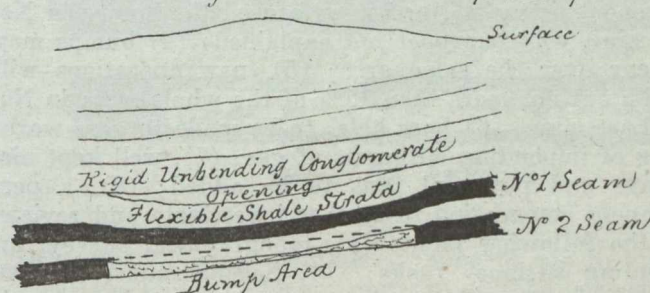 Surface
Rigid Unbending Conglomerate
Opening
Flexible Shale Strata
Nº1 Seam
Nº 2 Seam
Bump Area